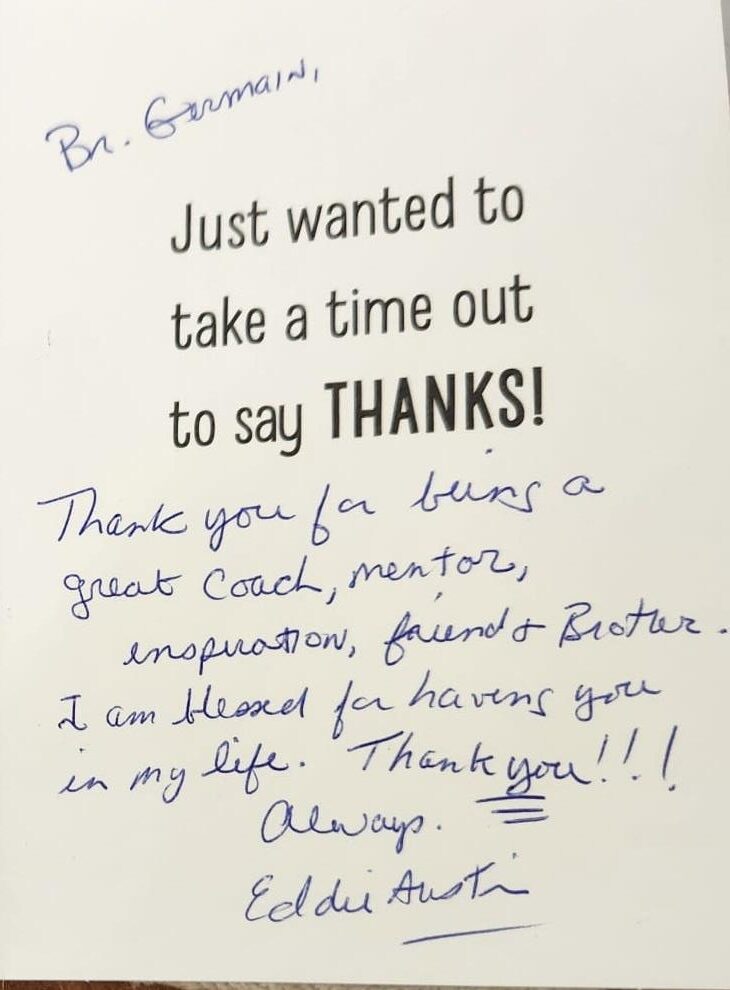 Br. Germain,
Just wanted to
take a time out
to say THANKS!
Thank you for being a
great Coach, mentor,
inspiration, friend & Brother.
I am blessed for having you
in my life. Thank you!!!
Always.
Eddie Austin